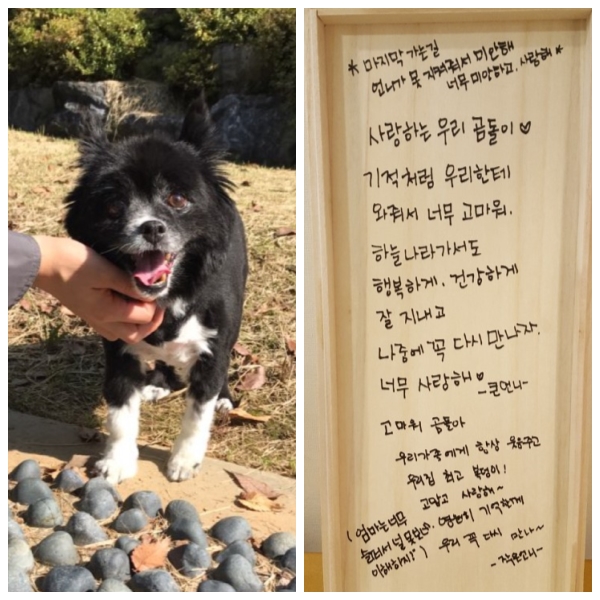 * 마지막 가는길
언니가 못 지켜줘서 미안해
너무 미안하고, 사랑해 *
사랑하는 우리 곰돌이 ♡
기적처럼 우리한테
와줘서 너무 고마워.
하늘나라가서도
행복하게. 건강하게
잘 지내고
나중에 꼭 다시 만나자.
너무 사랑해 ♡
-큰언니-
고마워 곰돌아
우리가족에게 항상 웃음주고
우리집 최고 복덩이!
고맙고 사랑해~
(엄마는 너무
슬퍼서 널 못봤어. 영원히 기억할게
이해하지?) 우리 꼭 다시 만나~
-작은언니-